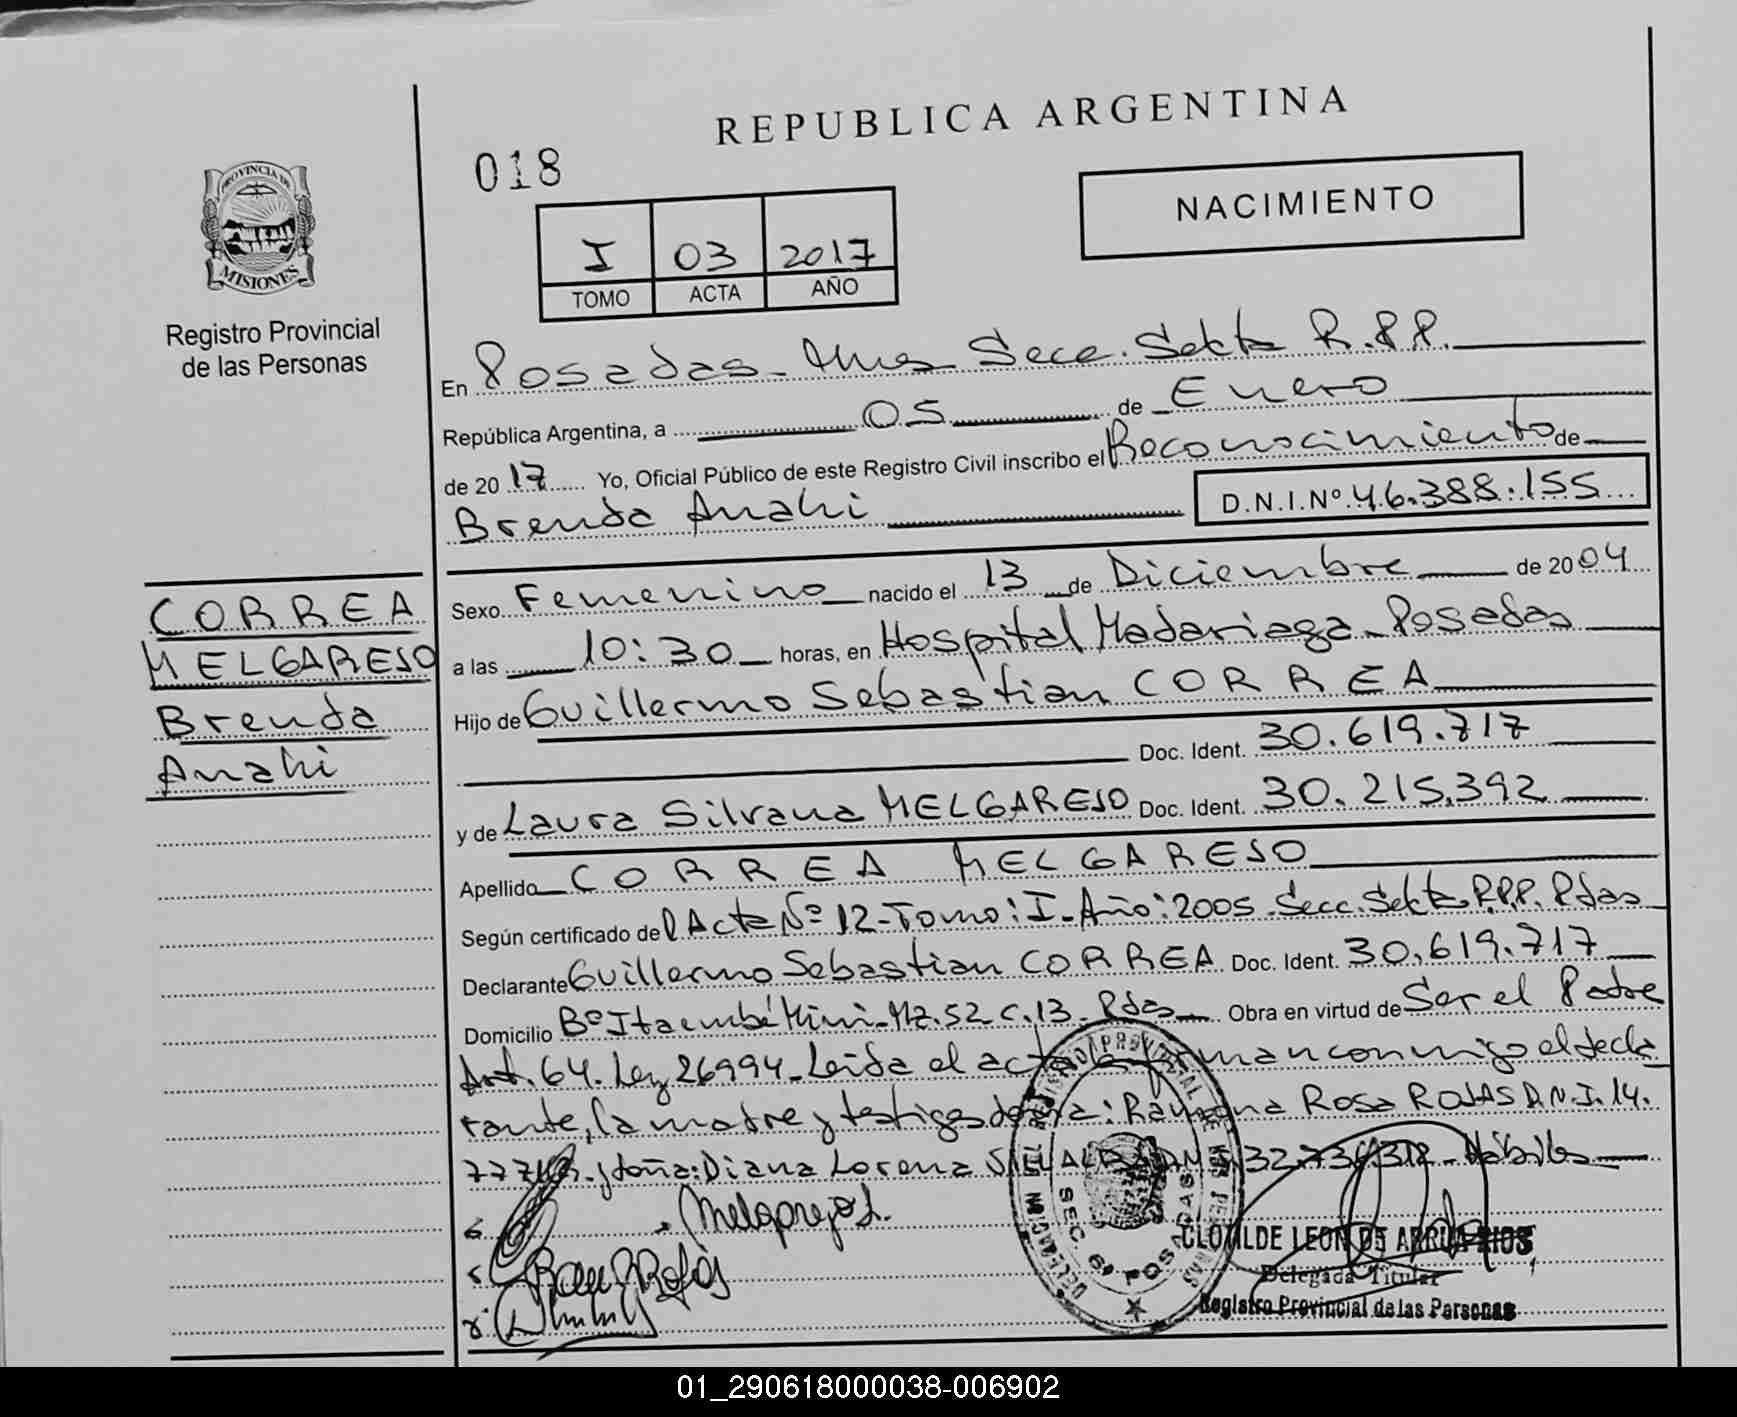 REPUBLICA ARGENTINA
018
NACIMIENTO
PROVINCIA DE
MISIONES
I 03 2017
TOMO ACTA AÑO
Registro Provincial
de las Personas
En Posadas - Mnes Secc. Sekta R.P.P.
República Argentina, a 05 de Enero
de 2017 Yo, Oficial Público de este Registro Civil inscribo el Reconocimiento de
Brenda Anahi D.N.I.Nº 46.388.155
CORREA
MELGAREJO
Brenda
Anahi
Sexo Femenino nacido el 13 de Diciembre de 2004
a las 10:30 horas, en Hospital Madariaga - Posadas
Hijo de Guillermo Sebastian CORREA
Doc. Ident. 30.619.717
y de Laura Silvana MELGAREJO Doc. Ident. 30.215.392
Apellido CORREA MELGAREJO
Según certificado del Acta Nº 12 - Tomo: I - Año: 2005 - Secc. Sekta R.P.P. Pdas
Declarante Guillermo Sebastian CORREA Doc. Ident. 30.619.717
Domicilio Bº Itaembé Mini - Mz. 52 C. 13 - Pdas Obra en virtud de Ser el Padre
Art. 64. Ley 26994 - Leida el acta la firman conmigo el decla
rante, la madre y testigos doña: Ramona Rosa ROJAS D.N.I. 14.
y doña: Diana Lorena - Hábiles
Melgarejo L.
DELEGACION DEL REGISTRO PROVINCIAL DE LAS PERSONAS
SEC. 6ª POSADAS
CLOTILDE LEON DE
Delegada Titular
Registro Provincial de las Personas
01_290618000038-006902